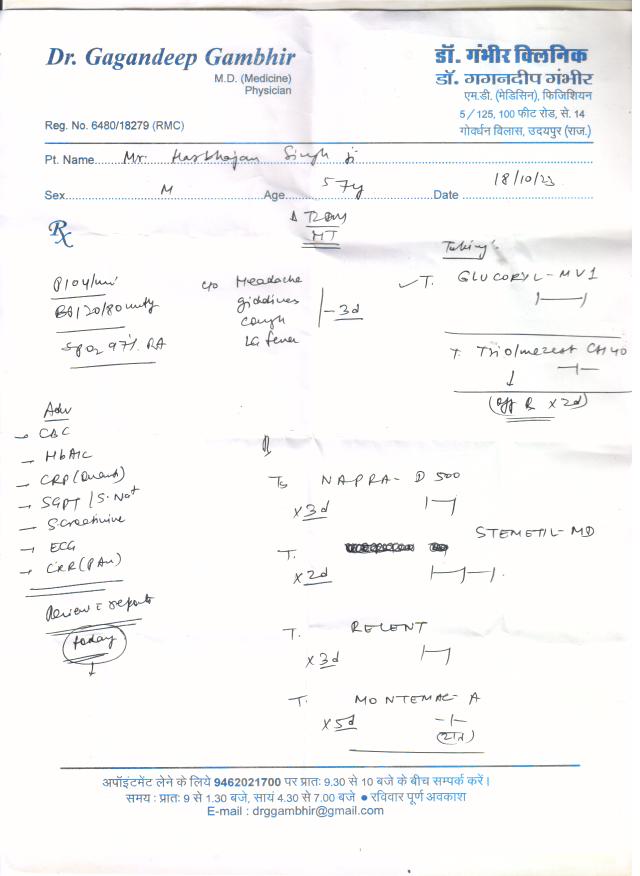 Dr. Gagandeep Gambhir
M.D. (Medicine)
Physician
Reg. No. 6480/18279 (RMC)
डॉ. गंभीर क्लिनिक
डॉ. गगनदीप गंभीर
एम.डी. (मेडिसिन), फिजिशियन
5/125, 100 फीट रोड, से. 14
गोवर्धन विलास, उदयपुर (राज.)
Pt. Name Mr. Harbhajan Singh Ji
Sex M Age 57y Date 18/10/23
Rx
Δ T2DM
HT
P104/min
BP120/80mmHg
SpO2 97% RA
c/o Headache
giddines
cough
LG fever
- 3d
Taking:
✓ T. GLUCORYL-MV1
T. Triolmezest CH40
↓
(off x 2d)
Adv
→ CBC
→ HbA1c
→ CRP (Quant)
→ SGPT / S. Na+
→ S creatinine
→ ECG
→ CXR (PAv)
Review c reports
today
↓
NAPRA-D 500
x 3d
T. STEMETIL-MD
x 2d
T. RELENT
x 3d
T. MONTEMAC-A
x 5d
(रात)
अपॉइंटमेंट लेने के लिये 9462021700 पर प्रातः 9.30 से 10 बजे के बीच सम्पर्क करें।
समय : प्रातः 9 से 1.30 बजे, सायं 4.30 से 7.00 बजे ● रविवार पूर्ण अवकाश
E-mail : drggambhir@gmail.com